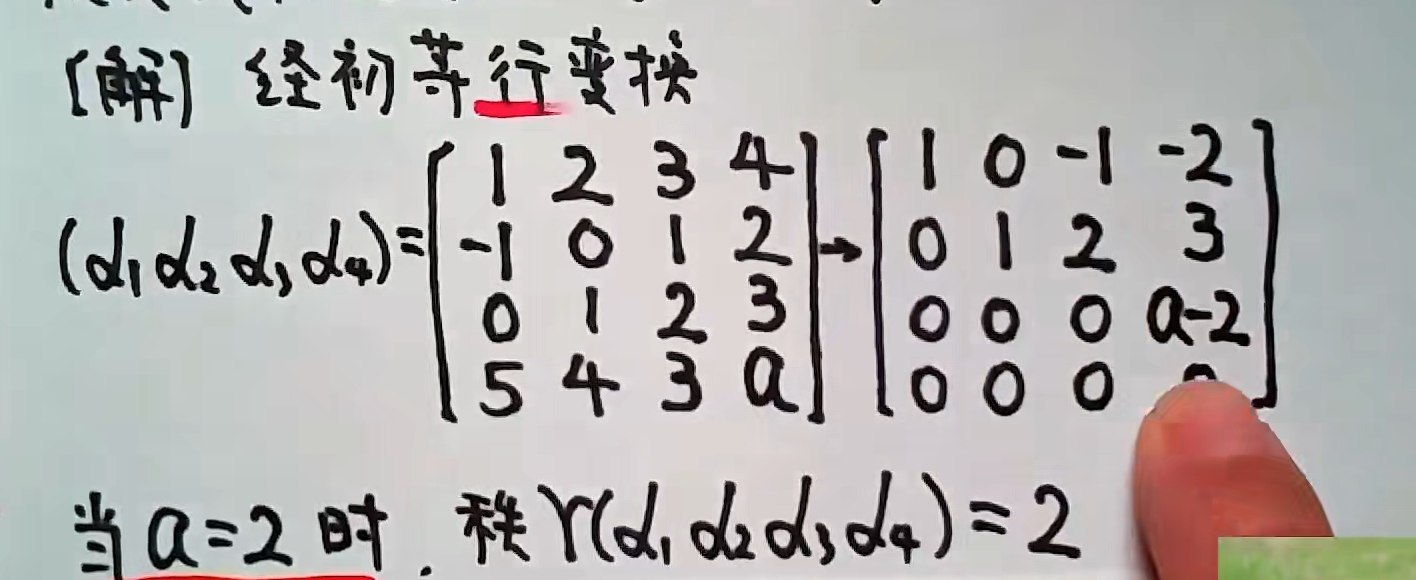 [解] 经初等行变换
(α₁ α₂ α₃ α₄) = [1 2 3 4; -1 0 1 2; 0 1 2 3; 5 4 3 a] → [1 0 -1 -2; 0 1 2 3; 0 0 0 a-2; 0 0 0
当 a=2 时. 秩 r(α₁ α₂ α₃ α₄) = 2